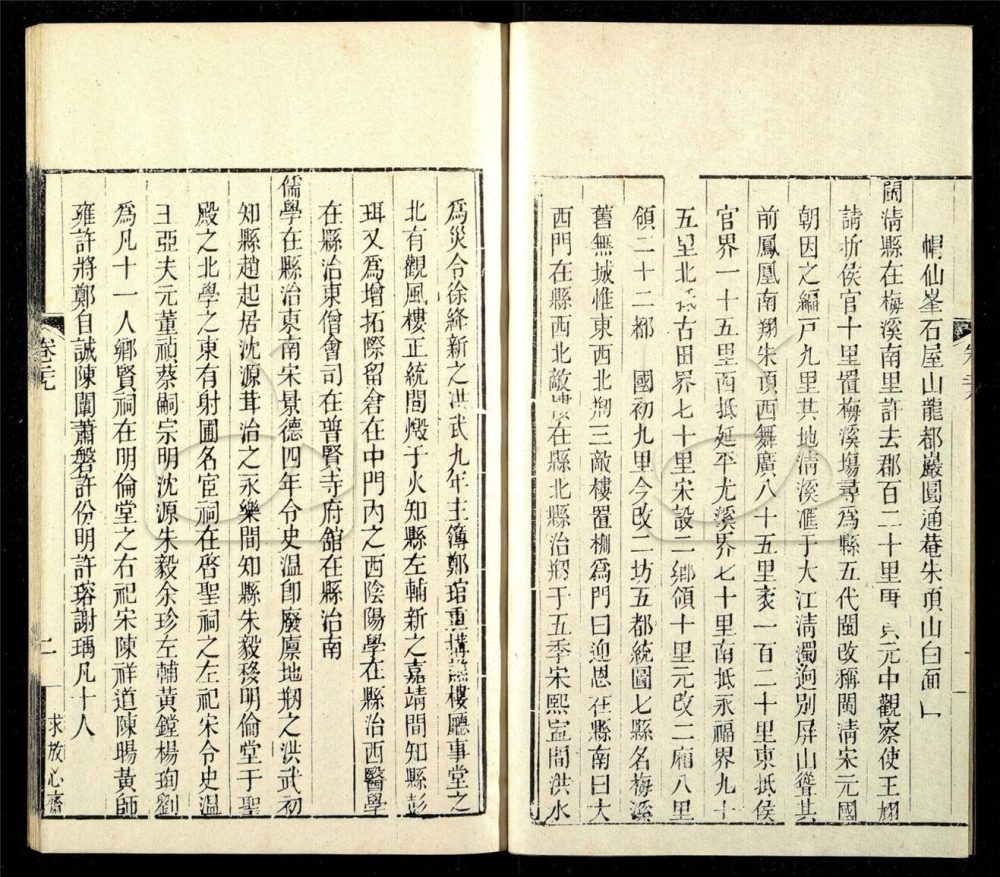 幌仙峯石屋山龍都巖圓通菴朱頂山白面
閩清縣在梅溪南里許去郡百二十里 貞元中觀察使王翃
請折侯官十里置梅溪塲尋爲縣五代閩改稱閩清宋元國
朝因之編戸九里其地清溪滙于大江清濁迥別屏山聳其
前鳳凰南翔朱頂西舞廣八十五里袤一百二十里東抵侯
官界一十五里西抵延平尤溪界七十里南抵永福界九十
五里北 古田界七十里宋設二鄉領十里元改二廂八里
領二十二都 國初九里今改二坊五都統圖七縣名梅溪
舊無城惟東西北剏三敵樓置柵爲門曰迎恩在縣南曰大
西門在縣西北敵樓在縣北縣治剏于五季宋熙寧間洪水
爲災令徐絳新之洪武九年主簿鄭琯重搆譙樓廳事堂之
北有觀風樓正統間燬于火知縣左輔新之嘉靖間知縣彭
珥又爲增拓際留倉在中門內之西陰陽學在縣治西醫學
在縣治東僧會司在普賢寺府舘在縣治南
儒學在縣治東南宋景德四年令史温卽廢廪地剏之洪武初
知縣趙起居沈源葺治之永樂間知縣朱毅移明倫堂于聖
殿之北學之東有射圃名宦祠在啓聖祠之左祀宋令史温
王亞夫元董禎蔡嗣宗明沈源朱毅余珍左輔黃鏜楊珣劉
爲凡十一人鄉賢祠在明倫堂之右祀宋陳祥道陳暘黃師
雍許將鄭自誠陳闡蕭磐許份明許瑢謝瑀凡十人
卷二九
二
求放心齋